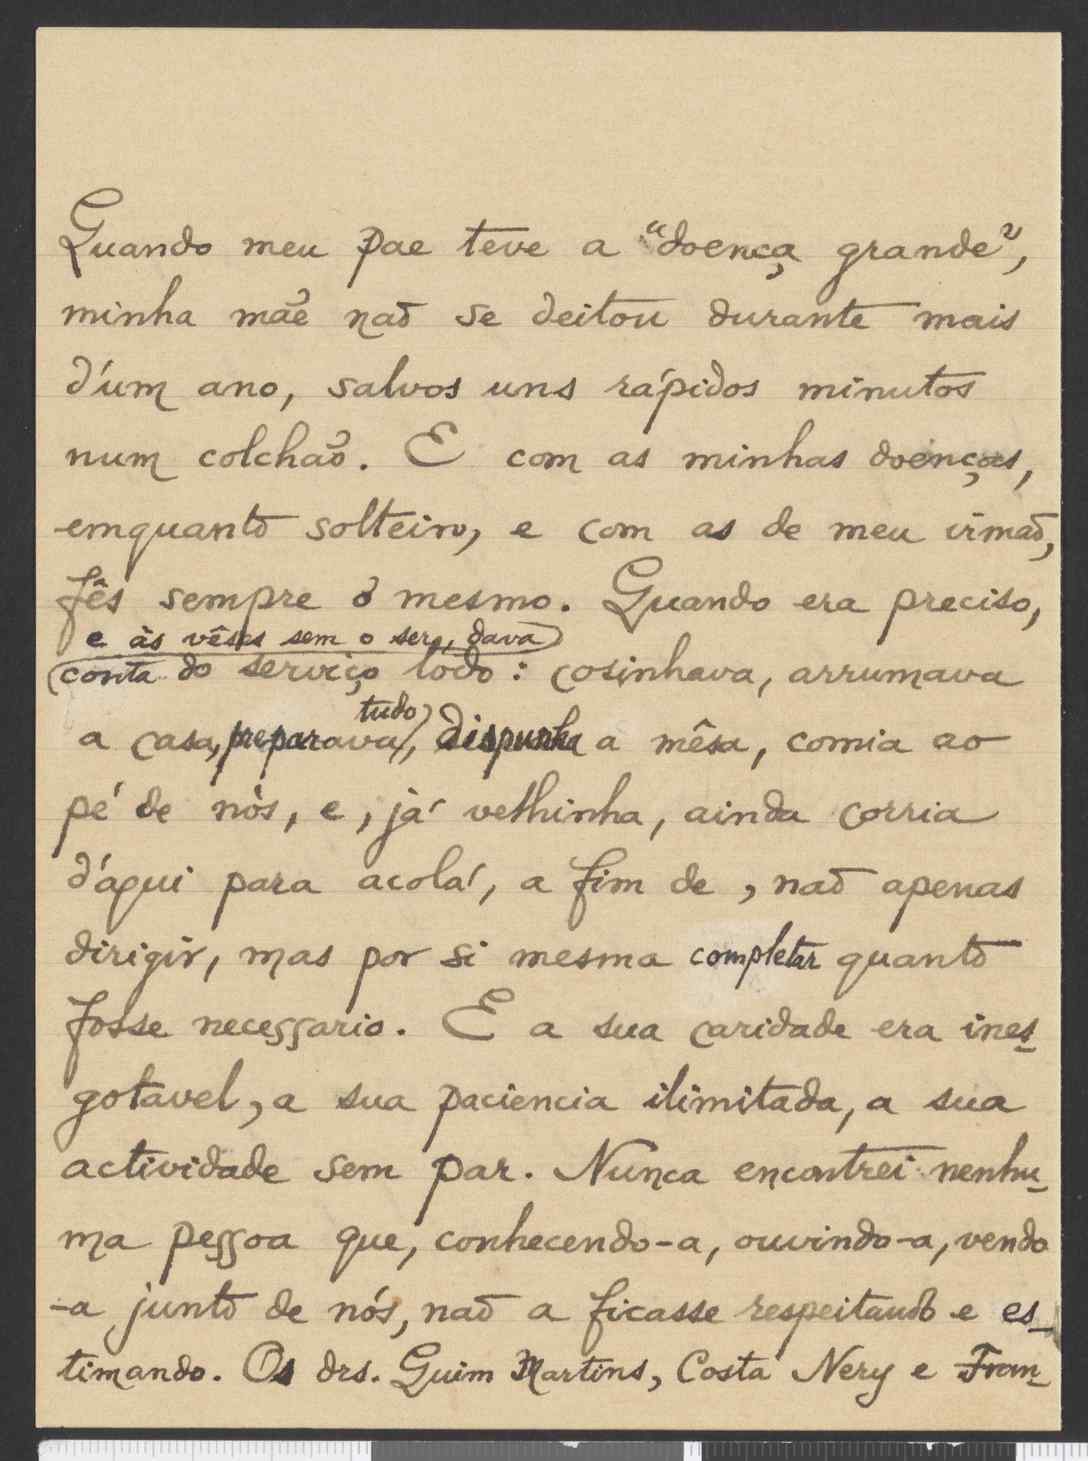 Quando meu pae teve a "doença grande",
minha mãe não se deitou durante mais
d'um ano, salvos uns rápidos minutos
num colchão. E com as minhas doenças,
emquanto solteiro, e com as de meu irmão,
fês sempre o mesmo. Quando era preciso,
e às vêses sem o ser, dava
conta do serviço todo: cosinhava, arrumava
tudo
a casa, preparava, dispunha a mêsa, comia ao
pé de nós, e, já velhinha, ainda corria
d'áqui para acolá, a fim de, não apenas
dirigir, mas por si mesma completar quanto
fosse necessario. E a sua caridade era ines-
gotavel, a sua paciencia ilimitada, a sua
actividade sem par. Nunca encontrei nenhu-
ma pessoa que, conhecendo-a, ouvindo-a, vendo
-a junto de nós, não a ficasse respeitando e es-
timando. Os drs. Guim Martins, Costa Nery e Fran-